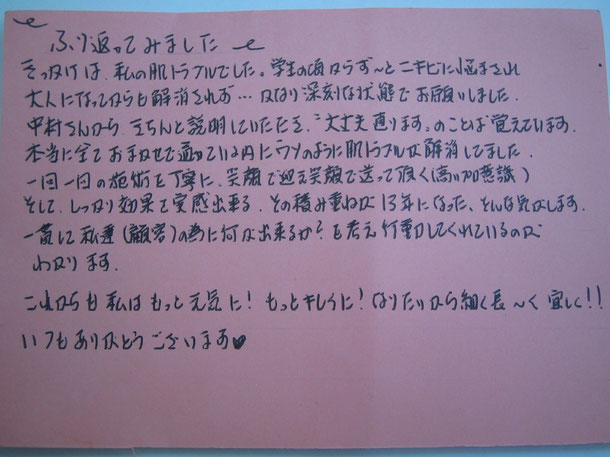 ふり返ってみました
きっかけは、私の肌トラブルでした。学生の頃からず〜とニキビに悩まされ
大人になってからも解消されず…かなり深刻な状態でお願いしました。
中村さんから、きちんと説明していただき、"大丈夫直ります"のことば覚えています。
本当に全ておまかせで通っている内にウソのように肌トラブルが解消してました。
一回一回の施術を丁寧に、笑顔で迎え笑顔で送って頂く(高い加意識)
そして、しっかり効果を実感出来る。その積み重ねが13年になった、そんな気がします。
一貫して私達(顧客)の為に何が出来るか?を考え行動してくれているのが
わかります。
これからも私はもっと元気に!もっとキレイに!なりたいから細く長〜く宜しく!!
いつもありがとうございます♥